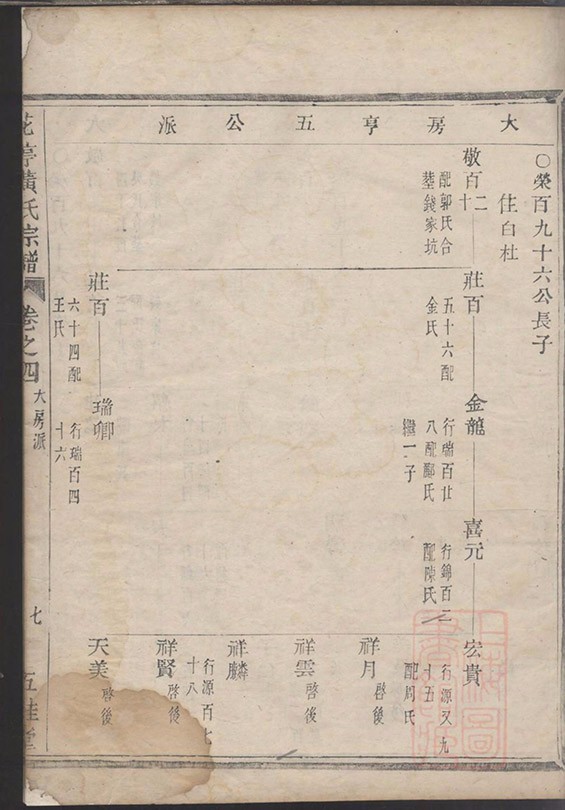 大房亨五公派
○榮百九十六公長子
住白杜
敬百二十
配郭氏合
塟錢家坑
莊百
五十六配
金氏
金龍
行瑞百廿
八配鄭氏
繼一子
喜元
行錦百三
配陳氏
宏貴
行源又九
十五
配周氏
祥月
啓後
祥雲
啓後
祥麟
行源百七
十八
祥賢
啓後
莊百
六十四配
王氏
瑞卿
行瑞百四
十六
天美
啓後
花亭黃氏宗譜
卷之四
大房派
七
五桂堂